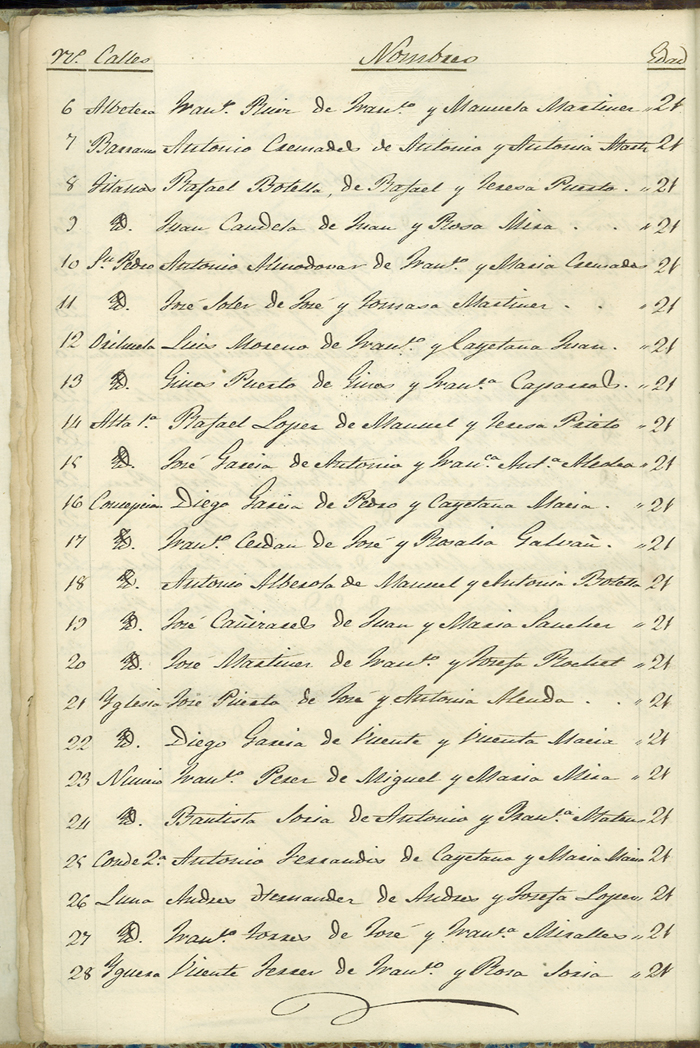 Nº. Calles Nombres Edad
6 Albotera Franº. Ruiz de Franº. y Manuela Martinez " 21
7 Antonio Cremades de Antonio y Antonia Mart 21
8 Gitanos Rafael Botella, de Rafael y Teresa Puerto. " 21
9 Id. Juan Candela de Juan y Rosa Mira . . " 21
10 Sn. Pedro Antonio Almodovar de Franº. y Maria Cremades 21
11 Id. José Soler de José y Tomasa Martinez . . " 21
12 Orihuela Luis Moreno de Franº. y Cayetana Juan. " 21
13 Id. Gines Puerto de Gines y Franª. Caparros. " 21
14 Alta 1ª Rafael Lopez de Manuel y Teresa Prieto " 21
15 Id. José Garcia de Antonio y Franca. Antª. " 21
16 Concepcion Diego Garcia de Pedro y Cayetana Macia . " 21
17 Id. Franº. Cerdan de José y Rosalia Galvañ. " 21
18 Id. Antonio Alberola de Manuel y Antonia Botella 21
19 Id. José Cañizares de Juan y Maria Sanchez " 21
20 Id. José Martinez de Franº. y Josefa Rochet " 21
21 Yglesia José Puerto de José y Antonia . . " 21
22 Id. Diego Garcia de Vicente y Vicenta Macia " 21
23 Franº. Perez de Miguel y Maria Mira " 21
24 Id. Bautista Soria de Antonio y Franª. 21
25 Conde 2ª Antonio Ferrandis de Cayetano y Maria 21
26 Luna Andres Hernandez de Andres y Josefa Lopez " 21
27 Id. Franº. Torres de José y Franª. Miralles " 21
28 Yguera Vicente Ferrer de Franº. y Rosa Soria " 21